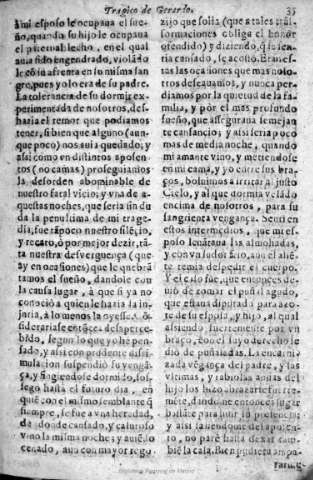 Tragico de Gerardo. 35
mi esposo le ocupaua el sue-
ño, quando su hijo le ocupaua
el perpetuo lecho, en el qual
auia sido engendrado, violado
le con su afrenta en su misma san
gre, pues yo lo era de su padre.
La tolerancia de su dormir ex-
perimentada de nosotros, des-
haria el temor que podiamos
tener, si bien que alguno (aun-
que poco) nos auia quedado, y
assi como en distintos aposen-
tos (no camas) proseguiamos
la desorden abominable de
nuestro fatal vicio; y vna de a-
questas noches, que seria sin du
da la penultima de mi trage-
dia, fue tãpoco nuestro silẽcio,
y recato, ò por mejor dezir, tã-
ta nuestra desverguença (que
ay en ocasiones) que le quebrã
tamos el sueño, dandole con
la causa lugar, à que si ya no
conociò a quien le hazia la in-
juria, à lo menos la oyesse.
sideraríase entõces desaperce-
bido, segun lo que yo he pen-
sado, y assi con prudente dissi-
mulacion suspendiò su vengã-
ça, y fingiendose dormido, sos-
segò hasta el futuro dia, en
què con el mismo semblante q̃
siempre, se fue a vna heredad,
dando de cansado, y caluroso
vino la misma noche; y auiẽdo
cenado, aun con mayor rego-
zijo que solia (que a tales trãs-
formaciones obliga el honor
ofendido) y diziendo, que ve-
nia cansado, se acostò. Eran es-
tas las ocasiones que mas noso-
tros desseauamos, y nunca per-
diamos por la quietud de la fa-
milia, y por el mas profundo
sueño, que assegurana semejan
te cansancio; y assi seria poco
mas de media noche, quando
mi amante vino, y metiendose
en mi cama, y yo entre sus bra-
ços, boluimos a irritar al justo
Cielo, y al que dormia velado
encima de nosotros, para su
sangrienta vengança. Senti en
estos intermedios, que mi es-
poso leuãtaua las almohadas,
y con vn sudor frio, aun el aliẽ-
te temia despedir el cuerpo.
Y este fue, que entonces de-
uiò de tomar el puñal agudo,
que estaua diputado para aço-
te de su esposa, y hijo, al qual
assiendo fuertemente por vn
braço, con el suyo derecho le
diò de puñaladas. La encarni-
zada vengança del padre, y las
vltimas, y rabiosas ansias del
hijo
diendome entonces lugar
bastãte para huir su presencia;
y assi saliendome del aposen-
to, no parè hasta dexar tam-
biẽ la casa. Bien pudiera ampa-
rarme
Biblioteca Regional de Madrid